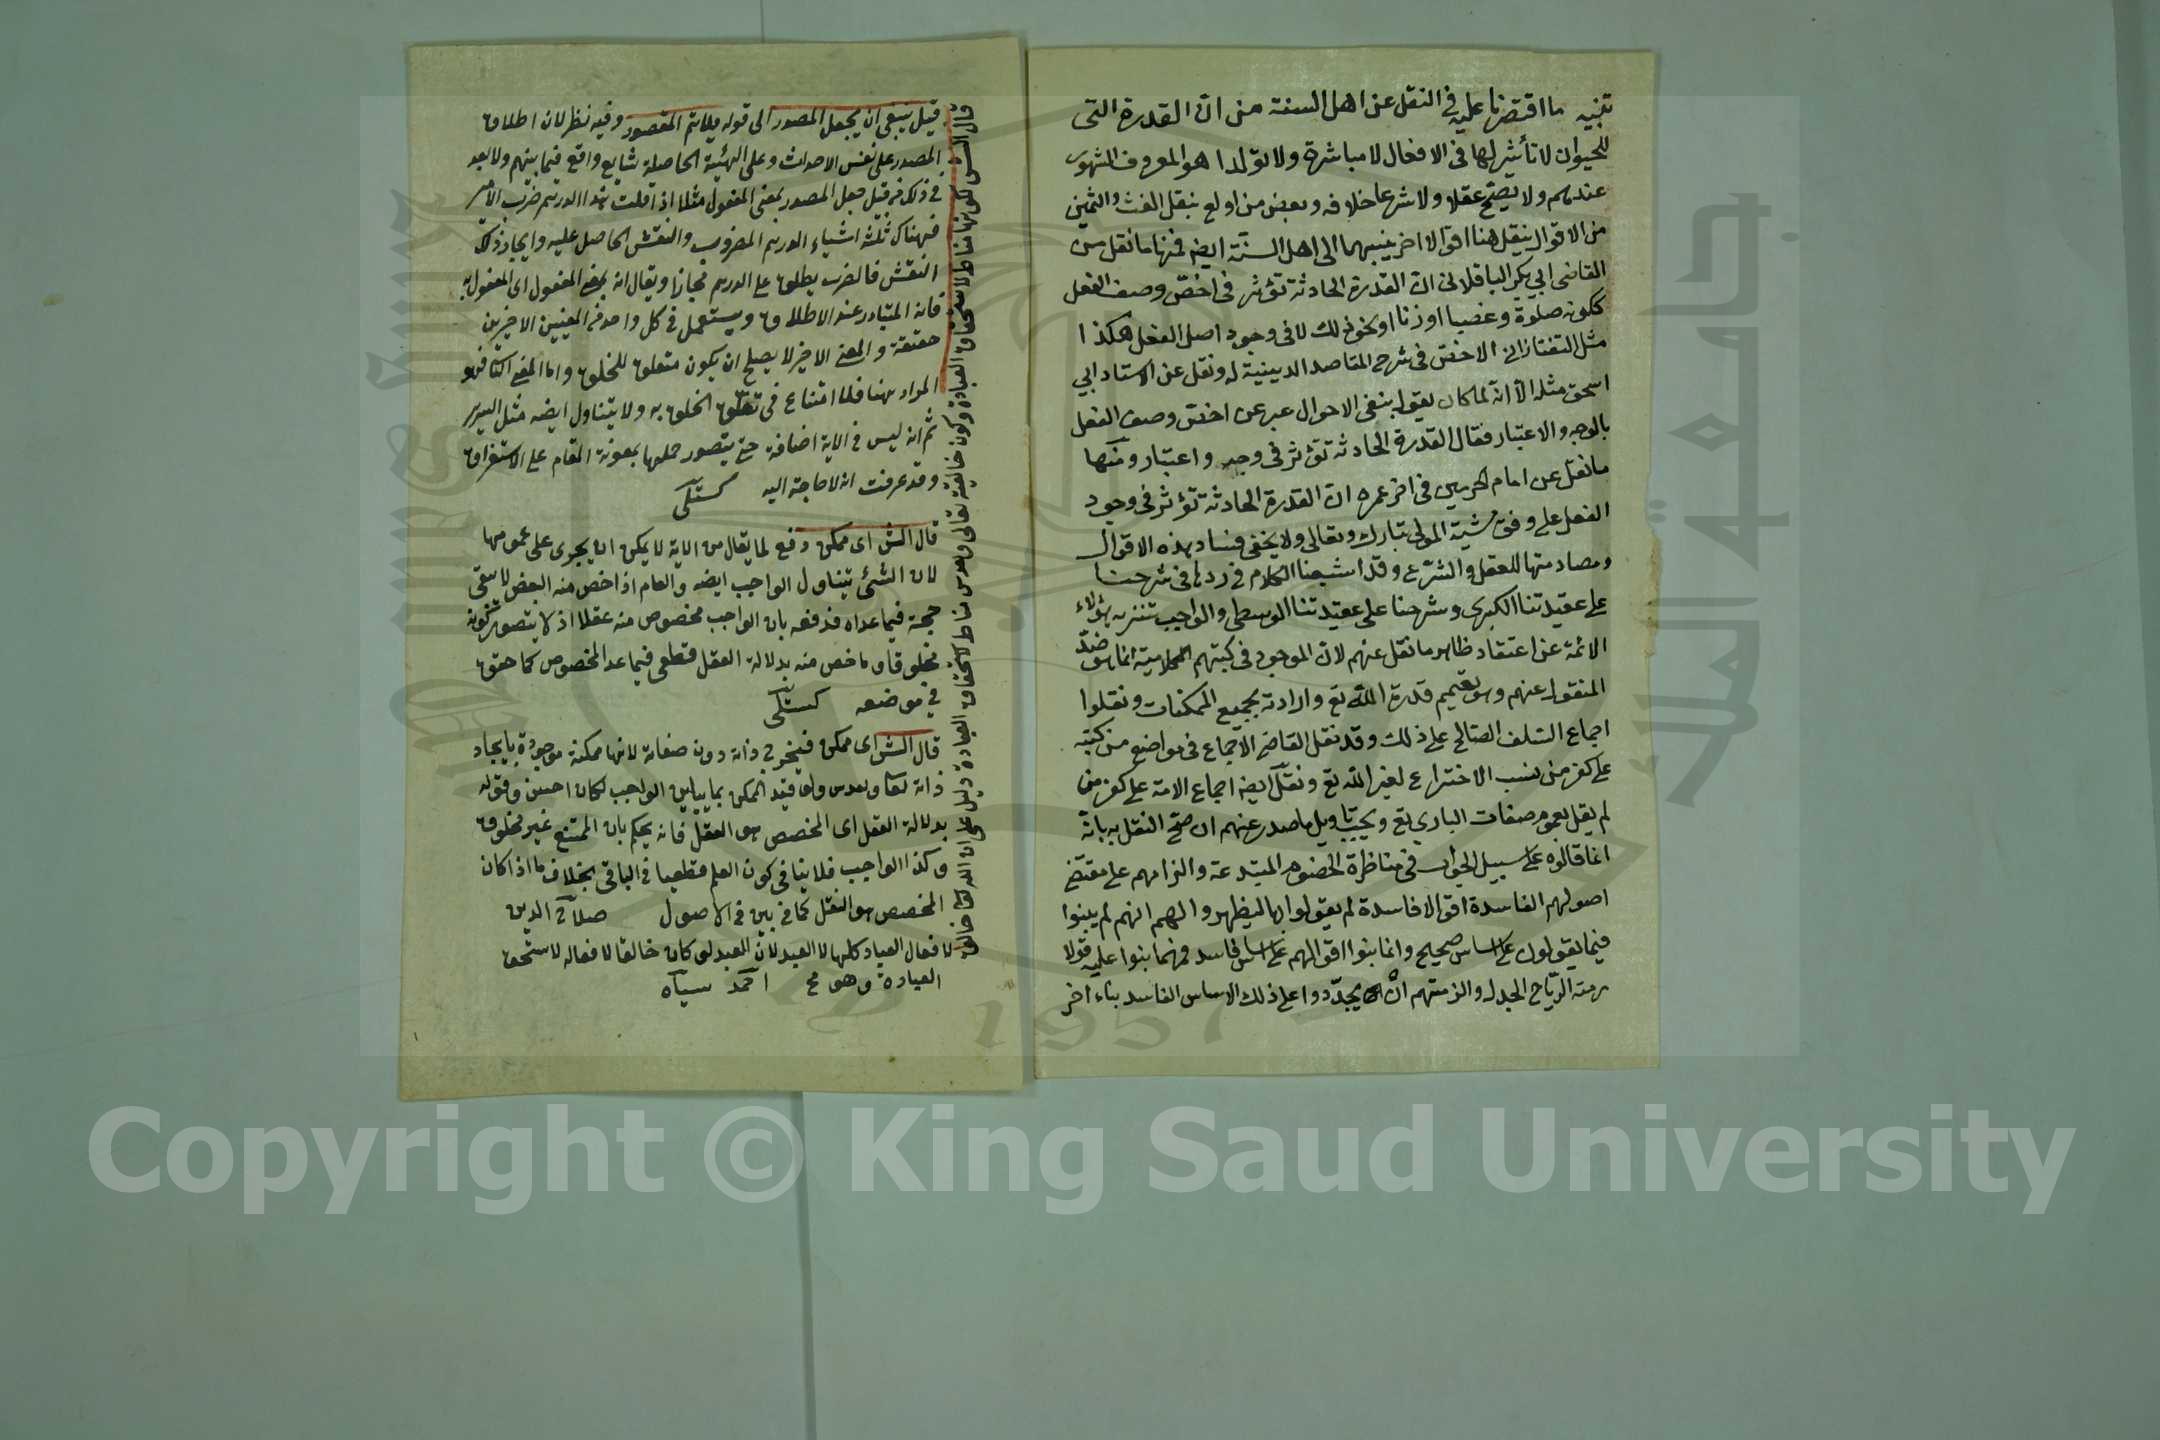 تنبيه ما اقتصرنا عليه في النقل عن اهل السنة من ان القدرة التى
للحيوان لا تأثير لها فى الافعال لا مباشرة ولا تولدا هو المعروف المشهور
عندهم ولا يصح عقلا ولا شرعا خلافه وبعض من اولع بنقل الغث والثمين
من الاقوال ينقل هنا اقوالا اخر ينسبها الى اهل السنة ايضا فمنها ما نقل من
القاضى ابي بكر الباقلانى ان القدرة الحادثة تؤثر فى اخص وصف الفعل
ككونه صلوة وغصبا او زنا او نحو ذلك لا فى وجود اصل الفعل هكذا
مثل التفتازانى الاخص فى شرح المقاصد الدينية له ونقل عن الاستاد ابي
اسحق مثله الا انه لما كان يقول بنفى الاحوال عبر عن اخص وصف الفعل
بالوجه والاعتبار فقال القدرة الحادثة تؤثر فى وجه واعتبار ومنها
ما نقل عن امام الحرمين فى اخر عمره ان القدرة الحادثة تؤثر فى وجود
الفعل على وفق مشية المولى تبارك وتعالى ولا يخفى فساد هذه الاقوال
ومصادمتها للعقل والشرع وقد اشبعنا الكلام فى ردها فى شرحنا
على عقيدتنا الكبرى وشرحنا على عقيدتنا الوسطى والواجب تنزيه هؤلاء
الائمة عن اعتقاد ظاهر ما نقل عنهم لان الموجود فى كتبهم الكلامية انما هو ضد
المنقول عنهم وهو تعميم قدرة الله تع وارادته بجميع الممكنات ونقلوا
اجماع السلف الصالح على ذلك وقد نقل القاضى الاجماع فى مواضع من كتبه
على كفر من نسب الاختراع لغير الله تع ونقل ايضا اجماع الامة على كفر من
لم يقل بعموم صفات البارى تع ويجب تاويل ما صدر عنهم ان صح النقل به بانه
انما قالوه على سبيل الجواب فى مناظرة الخصوم المبتدعة والزامهم على مقتضى
اصولهم الفاسدة اقوالا فاسدة لم يقولوا بها ليظهروا لهم انهم لم يبنوا
فيما يقولون على اساس صحيح وانما بنوا اقوالهم على اساس فاسد فمهما بنوا عليه قولا
رمته الرياح الجدل والزمتهم ان يجددوا على ذلك الاساس الفاسد بناء اخر
قيل ينبغى ان يجعل المصدر الى قوله يلائم المقصود وفيه نظر لان اطلاق
المصدر على نفس الاحداث وعلى الهيئة الحاصلة شايع واقع فيما بينهم ولا بعد
فى ذلك من قبيل جعل المصدر بمعنى المفعول مثلا اذا قلت هذا الدرهم ضرب الامير
فهناك ثلثة اشياء الدرهم المضروب والنقش الحاصل عليه وايجاد ذلك
النقش فالضرب يطلق على الدرهم مجازا ويقال انه بمعنى المفعول اى المفعول به
فانه المتبادر عند الاطلاق ويستعمل فى كل واحد من المعنيين الاخيرين
حقيقة والمعنى الاخير لا يصلح ان يكون متعلق للخلق واما المعنى الثانى فهو
المراد هنا فلا امتناع فى تعلق الخلق به ولا يتناول ايضا مثل السرير
ثم انه ليس فى الاية اضافة حتى يتصور حملها بمعونة المقام على الاستغراق
وقد عرفت انه لا حاجة اليه كستلى
قال الش اى ممكن دفع لما يقال من الاية لا يمكن ان يجرى على عمومها
لان الشئ يتناول الواجب ايضا والعام اذا خص منه البعض لا يبقى
حجة فيما عداه فدفعه بان الواجب مخصوص منه عقلا اذ لا يتصور كونه
مخلوقا وما خص منه بدلالة العقل قطعى فيما عدا المخصوص كما حقق
فى موضعه كستلى
قال الش اى ممكن فيخرج ذاته دون صفاته لانها ممكنة موجودة بايجاد
ذاته ولو قيد الممكن بما يباين الواجب لكان احسن وقوله
بدلالة العقل اى المخصص هو العقل فانه يحكم بان الممتنع غير مخلوق
وكذا الواجب فلا ينافى كون العلم قطعيا فى الباقى بخلاف ما اذا كان
المخصص هو النقل كما بين فى الاصول صلاح الدين
قال الش كونها مناط لاستحقاق العبادة وكون خالقيته تعالى مناط لاستحقاق العبادة دليل على ان الله تعا خالق
لافعال العباد كلها لا العبد لان العبد لو كان خالقا لافعاله لاستحق
العبادة وهو مح احمد سياه
Copyright © King Saud University
جامعة الملك سعود
1957